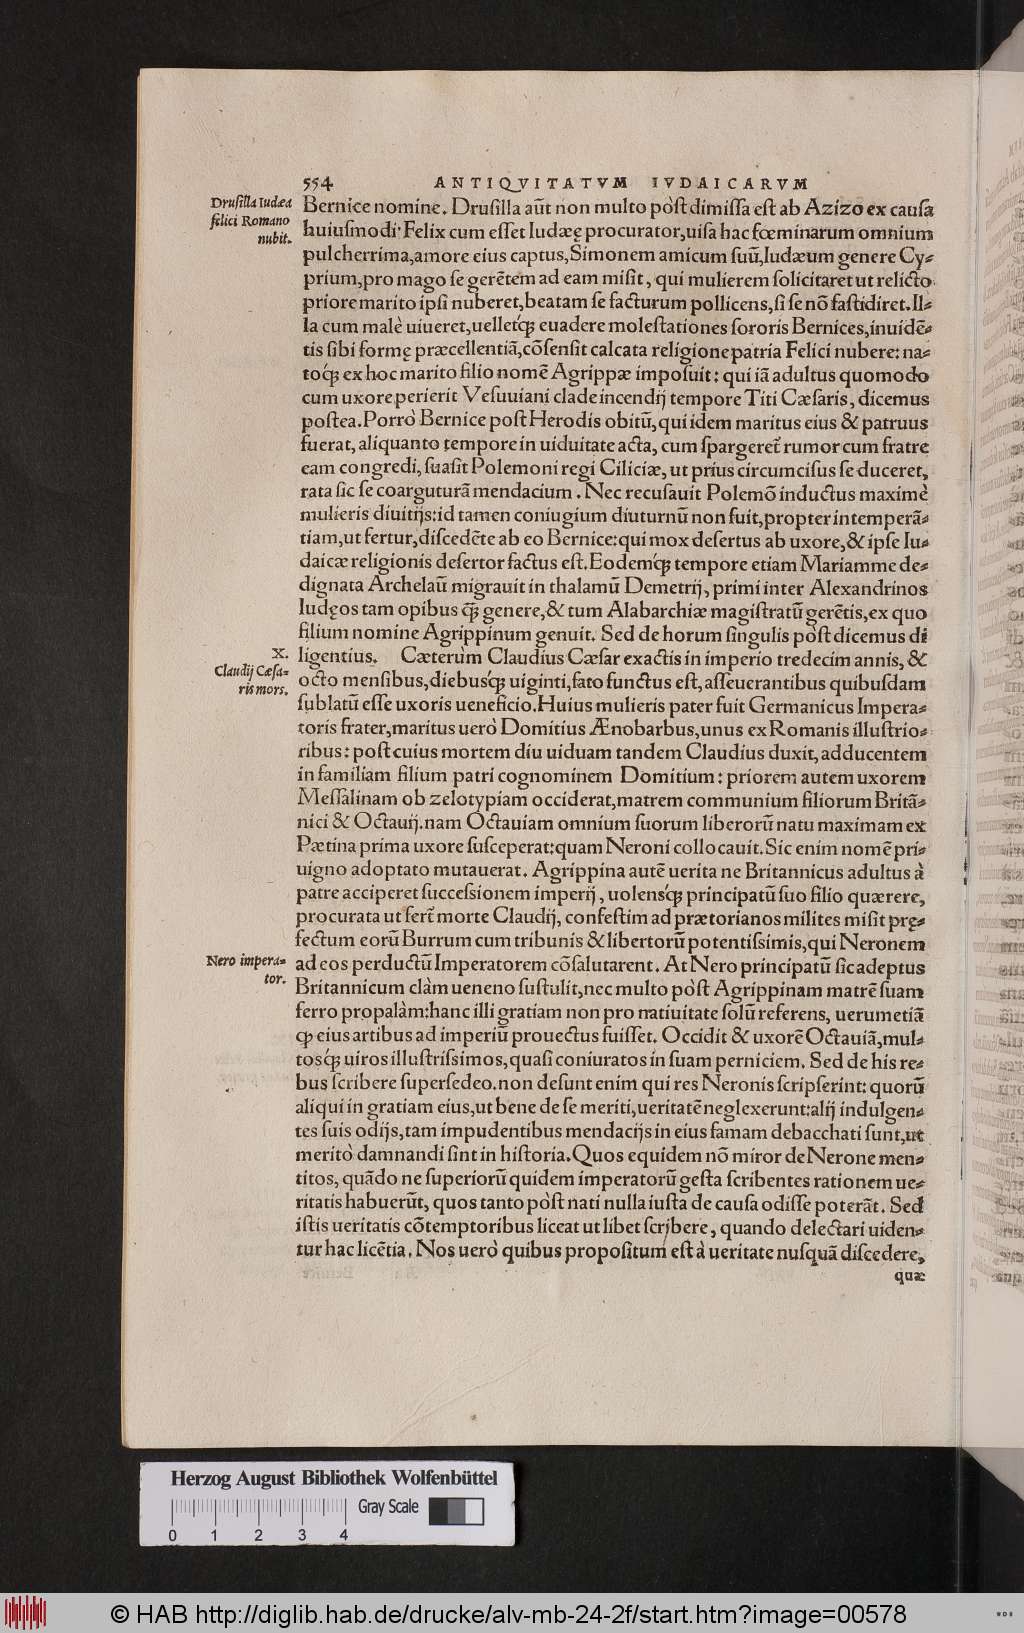 554 ANTIQVITATVM IVDAICARVM
Drusilla Iudæa
felici Romano
nubit.
Bernice nomine. Drusilla aũt non multo pòst dimissa est ab Azizo ex causa
huiusmodi· Felix cum esset Iudæę procurator, uisa hac fœminarum omnium
pulcherrima, amore eius captus, Simonem amicum suũ, Iudæum genere Cy-
prium, pro mago se gerẽtem ad eam misit, qui mulierem solicitaret ut relicto
priore marito ipsi nuberet, beatam se facturum pollicens, si se nõ fastidiret. Il-
la cum malè uiueret, uelletq́; euadere molestationes sororis Bernices, inuidẽ-
tis sibi formę præcellentiã, cõsensit calcata religione patria Felici nubere: na-
toq́; ex hoc marito filio nomẽ Agrippæ imposuit: qui iã adultus quomodo
cum uxore perierit Vesuuiani clade incendij tempore Titi Cæsaris, dicemus
postea. Porrò Bernice post Herodis obitũ, qui idem maritus eius & patruus
fuerat, aliquanto tempore in uiduitate acta, cum spargeret̃ rumor cum fratre
eam congredi, suasit Polemoni regi Ciliciæ, ut prius circumcisus se duceret,
rata sic se coarguturã mendacium. Nec recusauit Polemõ inductus maximè
mulieris diuitijs: id tamen coniugium diuturnũ non fuit, propter intemperã-
tiam, ut fertur, discedẽte ab eo Bernice: qui mox desertus ab uxore, & ipse Iu-
daicæ religionis desertor factus est. Eodemq́; tempore etiam Mariamme de-
dignata Archelaũ migrauit in thalamũ Demetrij, primi inter Alexandrinos
Iudęos tam opibus q̃; genere, & tum Alabarchiæ magistratũ gerẽtis, ex quo
filium nomine Agrippinum genuit. Sed de horum singulis pòst dicemus di
X.
Claudij Cæsa-
ris mors.
ligentius. Cæterùm Claudius Cæsar exactis in imperio tredecim annis, &
octo mensibus, diebusq́; uiginti, fato functus est, asseuerantibus quibusdam
sublatũ esse uxoris ueneficio. Huius mulieris pater fuit Germanicus Impera-
toris frater, maritus uerò Domitius Ænobarbus, unus ex Romanis illustrio-
ribus: post cuius mortem diu uiduam tandem Claudius duxit, adducentem
in familiam filium patri cognominem Domitium: priorem autem uxorem
Messalinam ob zelotypiam occiderat, matrem communium filiorum Britã-
nici & Octauij. nam Octauiam omnium suorum liberorũ natu maximam ex
Pætina prima uxore susceperat: quam Neroni collocauit. Sic enim nomẽ pri-
uigno adoptato mutauerat. Agrippina autẽ uerita ne Britannicus adultus à
patre acciperet successionem imperij, uolensq́; principatũ suo filio quærere,
procurata ut fert̃ morte Claudij, confestim ad prætorianos milites misit pręs-
fectum eorũ Burrum cum tribunis & libertorũ potentissimis, qui Neronem
Nero impera-
tor.
ad eos perductũ Imperatorem cõsalutarent. At Nero principatũ sic adeptus
Britannicum clàm ueneno sustulit, nec multo pòst Agrippinam matrẽ suam
ferro propalàm: hanc illi gratiam non pro natiuitate solũ referens, uerumetiã
q̃; eius artibus ad imperiũ prouectus fuisset. Occidit & uxorẽ Octauiã, mul-
tosq́; uiros illustrissimos, quasi coniuratos in suam perniciem. Sed de his re-
bus scribere supersedeo. non desunt enim qui res Neronis scripserint: quorũ
aliqui in gratiam eius, ut bene de se meriti, ueritatẽ neglexerunt: alij indulgen-
tes suis odijs, tam impudentibus mendacijs in eius famam debacchati sunt, ut
meritò damnandi sint in historia. Quos equidem nõ miror de Nerone men-
titos, quãdo ne superiorũ quidem imperatorũ gesta scribentes rationem ue-
ritatis habuerũt, quos tanto pòst nati nulla iusta de causa odisse poterãt. Sed
istis ueritatis cõtemptoribus liceat ut libet scribere, quando delectari uiden-
tur hac licẽtia. Nos uerò quibus propositum est à ueritate nusquã discedere,
quæ
Herzog August Bibliothek Wolfenbüttel
Gray Scale
0 1 2 3 4
© HAB http://diglib.hab.de/drucke/alv-mb-24-2f/start.htm?image=00578